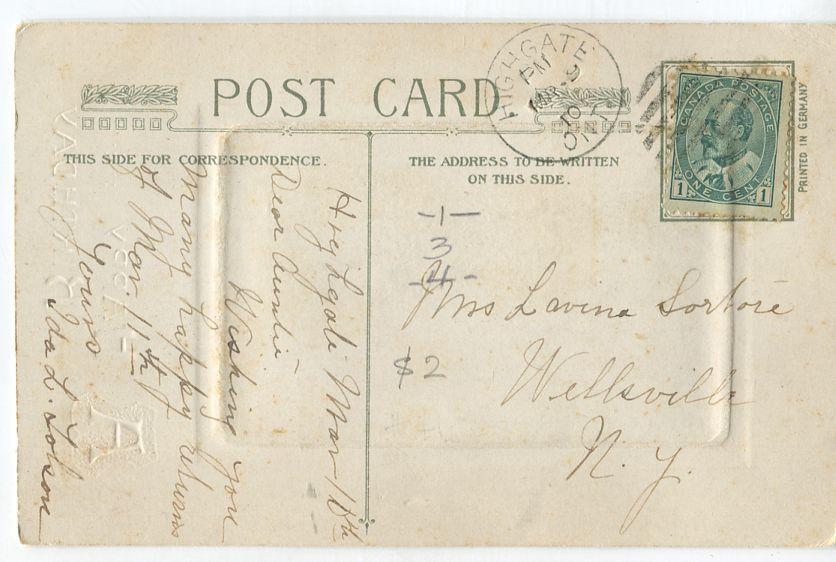 POST CARD
THIS SIDE FOR CORRESPONDENCE.
THE ADDRESS TO BE WRITTEN
ON THIS SIDE.
HIGHGATE
PM 9
MAR
10
ONT
CANADA POSTAGE
1 ONE CENT 1
PRINTED IN GERMANY
Highgate Mar 10th
Dear Auntie
Wishing you
Many happy returns
of Mar. 11th
Yours
Ida L.
-1-
3
-4-
$2
Mrs Lavina Sortore
Wellsville
N. Y.